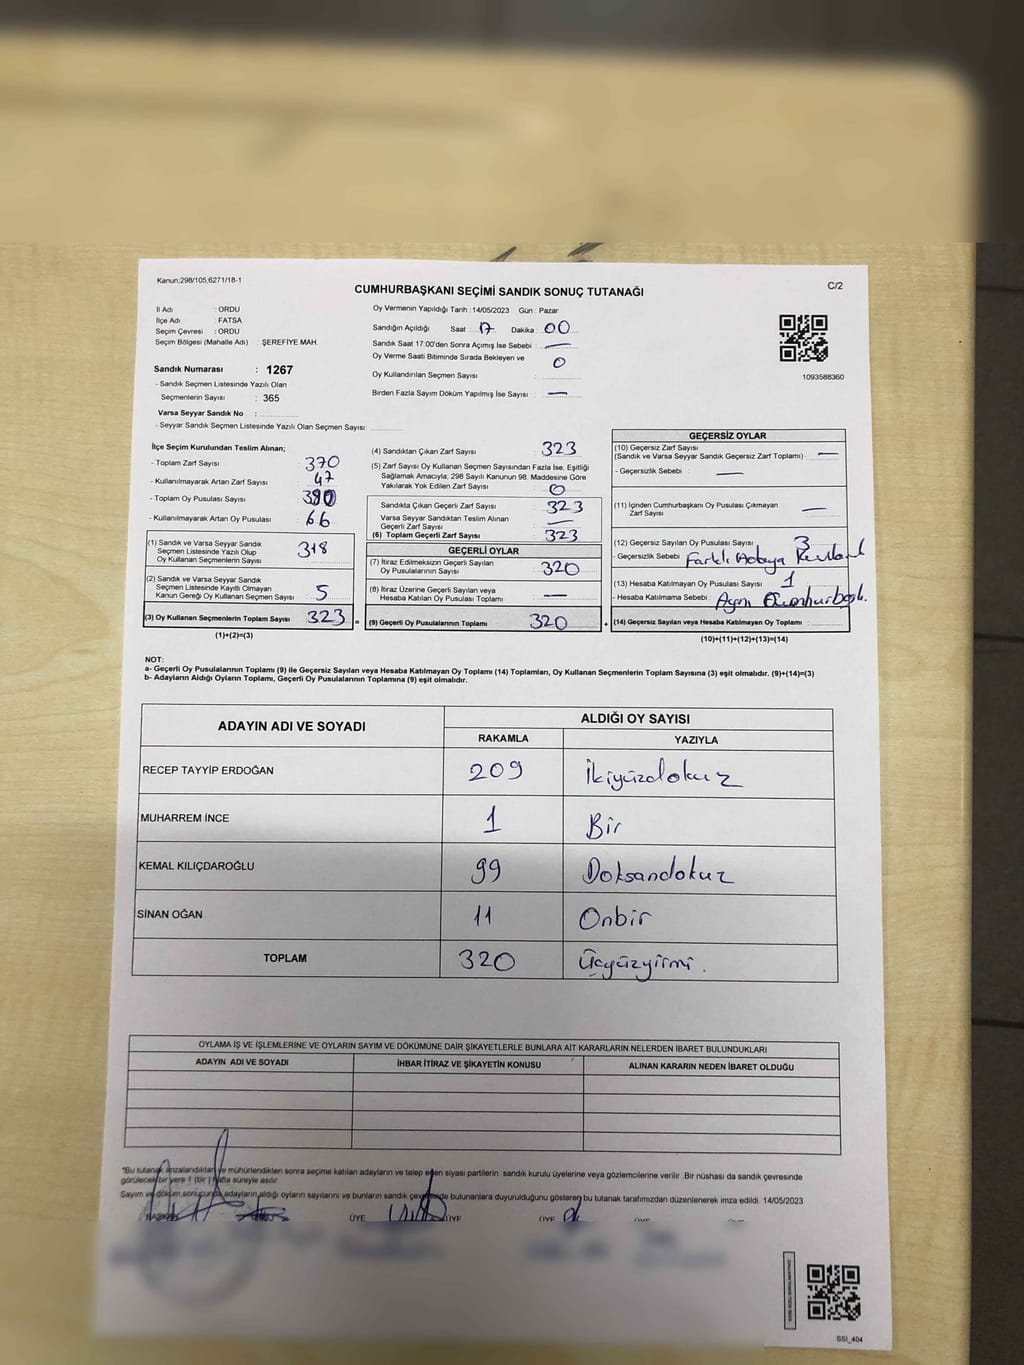 Kanun;298/105;6271/18-1
CUMHURBAŞKANI SEÇİMİ SANDIK SONUÇ TUTANAĞI
C/2
İl Adı : ORDU
İlçe Adı : FATSA
Seçim Çevresi : ORDU
Seçim Bölgesi (Mahalle Adı) : ŞEREFİYE MAH.
Sandık Numarası : 1267
- Sandık Seçmen Listesinde Yazılı Olan
Seçmenlerin Sayısı : 365
Varsa Seyyar Sandık No :
- Seyyar Sandık Seçmen Listesinde Yazılı Olan Seçmen Sayısı:
Oy Vermenin Yapıldığı Tarih :14/05/2023 Gün : Pazar
Sandığın Açıldığı Saat : 17 Dakika : 00
Sandık Saat 17:00'den Sonra Açılmış İse Sebebi : —
Oy Verme Saati Bitiminde Sırada Bekleyen ve 0
Oy Kullandırılan Seçmen Sayısı :
Birden Fazla Sayım Döküm Yapılmış İse Sayısı : —
1093588360
İlçe Seçim Kurulundan Teslim Alınan;
- Toplam Zarf Sayısı : 370
- Kullanılmayarak Artan Zarf Sayısı : 47
- Toplam Oy Pusulası Sayısı : 390
- Kullanılmayarak Artan Oy Pusulası : 66
(1) Sandık ve Varsa Seyyar Sandık
Seçmen Listesinde Yazılı Olup
Oy Kullanan Seçmenlerin Sayısı : 318
(2) Sandık ve Varsa Seyyar Sandık
Seçmen Listesinde Kayıtlı Olmayan
Kanun Gereği Oy Kullanan Seçmen Sayısı : 5
(3) Oy Kullanan Seçmenlerin Toplam Sayısı : 323
(1)+(2)=(3)
(4) Sandıktan Çıkan Zarf Sayısı : 323
(5) Zarf Sayısı Oy Kullanan Seçmen Sayısından Fazla İse, Eşitliği
Sağlamak Amacıyla; 298 Sayılı Kanunun 98. Maddesine Göre
Yakılarak Yok Edilen Zarf Sayısı : 0
Sandıkta Çıkan Geçerli Zarf Sayısı : 323
Varsa Seyyar Sandıktan Teslim Alınan
Geçerli Zarf Sayısı : —
(6) Toplam Geçerli Zarf Sayısı : 323
GEÇERLİ OYLAR
(7) İtiraz Edilmeksizin Geçerli Sayılan
Oy Pusulalarının Sayısı : 320
(8) İtiraz Üzerine Geçerli Sayılan veya
Hesaba Katılan Oy Pusulası Toplamı : —
(9) Geçerli Oy Pusulalarının Toplamı : 320
GEÇERSİZ OYLAR
(10) Geçersiz Zarf Sayısı
(Sandık ve Varsa Seyyar Sandık Geçersiz Zarf Toplamı) : —
- Geçersizlik Sebebi : —
(11) İçinden Cumhurbaşkanı Oy Pusulası Çıkmayan
Zarf Sayısı : —
(12) Geçersiz Sayılan Oy Pusulası Sayısı : 3
- Geçersizlik Sebebi : Farklı Adaya
(13) Hesaba Katılmayan Oy Pusulası Sayısı : 1
- Hesaba Katılmama Sebebi :
(14) Geçersiz Sayılan veya Hesaba Katılmayan Oy Toplamı :
(10)+(11)+(12)+(13)=(14)
NOT:
a- Geçerli Oy Pusulalarının Toplamı (9) ile Geçersiz Sayılan veya Hesaba Katılmayan Oy Toplamı (14) Toplamları, Oy Kullanan Seçmenlerin Toplam Sayısına (3) eşit olmalıdır. (9)+(14)=(3)
b- Adayların Aldığı Oyların Toplamı, Geçerli Oy Pusulalarının Toplamına (9) eşit olmalıdır.
ADAYIN ADI VE SOYADI
ALDIĞI OY SAYISI
RAKAMLA YAZIYLA
RECEP TAYYİP ERDOĞAN 209 İkiyüzdokuz
MUHARREM İNCE 1 Bir
KEMAL KILIÇDAROĞLU 99 Doksandokuz
SİNAN OĞAN 11 Onbir
TOPLAM 320 Üçyüzyirmi.
OYLAMA İŞ VE İŞLEMLERİNE VE OYLARIN SAYIM VE DÖKÜMÜNE DAİR ŞİKAYETLERLE BUNLARA AİT KARARLARIN NELERDEN İBARET BULUNDUKLARI
ADAYIN ADI VE SOYADI İHBAR İTİRAZ VE ŞİKAYETİN KONUSU ALINAN KARARIN NEDEN İBARET OLDUĞU
"Bu tutanak imzalandıktan ve mühürlendikten sonra seçime katılan adayların ve talep eden siyasi partilerin sandık kurulu üyelerine veya gözlemcilerine verilir. Bir nüshası da sandık çevresinde
görülecek bir yere 1 (bir) hafta süreyle asılır.
Sayım ve döküm sonucunda adayların aldığı oyların sayılarını ve bunların sandık çevresinde bulunanlara duyurulduğunu gösteren bu tutanak tarafımızdan düzenlenerek imza edildi. 14/05/2023
BAŞKAN ÜYE ÜYE ÜYE ÜYE
SSİ_404